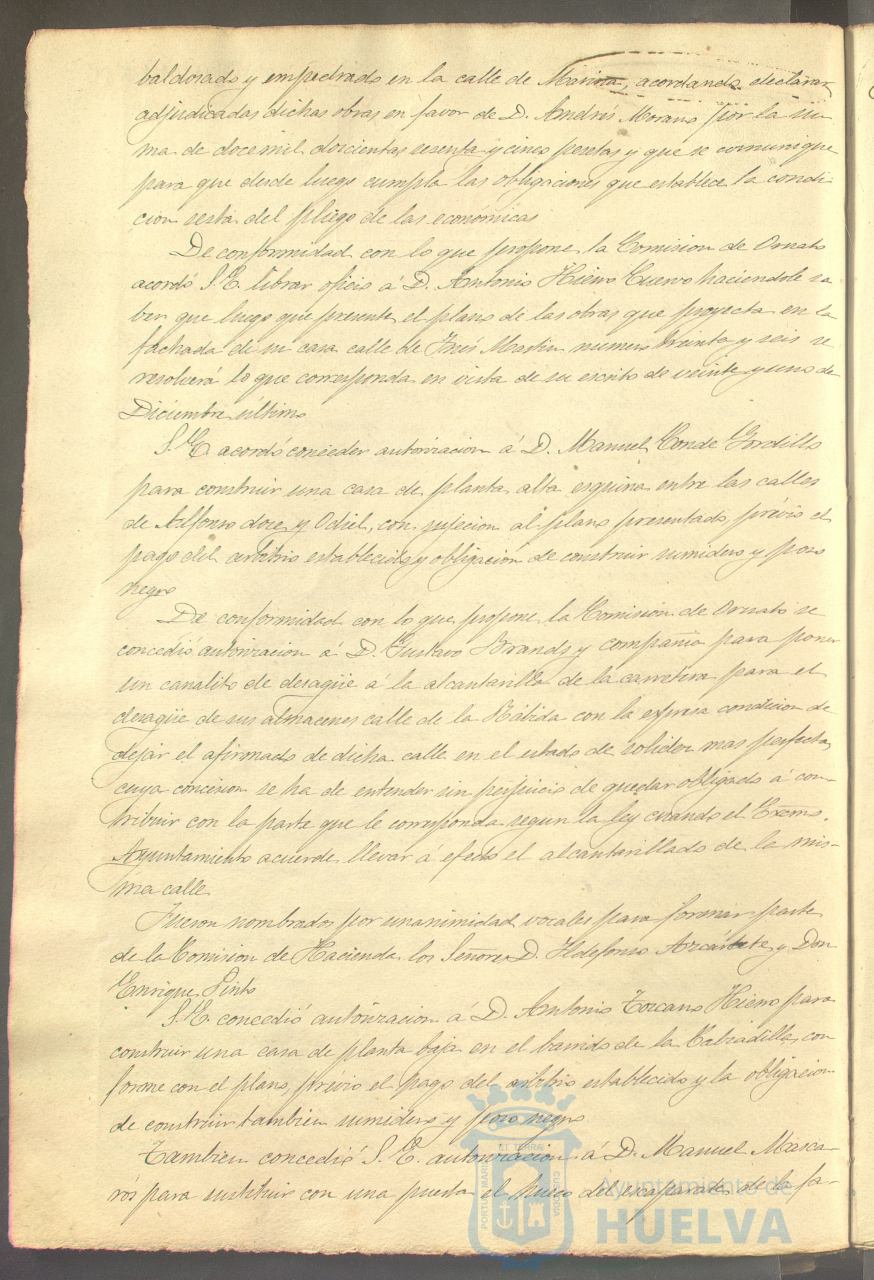 baldosado y empedrado en la calle de Marina, acordando declarar
adjudicadas dichas obras en favor de D. Andrés Morano por la su-
ma de doce mil doscientas sesenta y cinco pesetas y que se comunique
para que desde luego cumpla las obligaciones que establece la condi-
cion sesta del pliego de las económicas
De conformidad con lo que propone la Comision de Ornato
acordó S.E. librar oficio á D. Antonio Hierro Cuervo haciendole sa
ber que luego que presente el plano de las obras que proyecta en la
fachada de su casa calle de Inés Martin numero treinta y seis se
resolverá lo que corresponda en vista de su escrito de veinte y uno de
Diciembre último
S.E. acordó conceder autorizacion á D. Manuel Conde Gordillo
para construir una casa de planta alta esquina entre las calles
de Alfonso doce y Odiel, con sujecion al plano presentado, prévio el
pago del arbitrio establecido y obligacion de construir sumidero y pozo
negro
De conformidad con lo que propone la Comision de Ornato se
concedió autorizacion á D. Gustavo Brands y compañia para poner
un canalito de desagüe á la alcantarilla de la carretera para el
desagüe de sus almacenes calle de la Rábida con la espresa condicion de
dejar el afirmado de dicha calle en el estado de solidez mas perfecta,
cuya concesion se ha de entender sin perjuicio de quedar obligado á con-
tribuir con la parte que le corresponda segun la ley cuando el Excmo.
Ayuntamiento acuerde llevar á efecto el alcantarillado de la mis-
ma calle
Fueron nombrados por unanimidad vocales para formar parte
de la Comision de Hacienda los Señores D. Ildefonso Azcárate y Don
Enrique Pinto
S.E. concedió autorizacion á D. Antonio Toscano Hierro para
construir una casa de planta baja en el barrido de la Calzadilla, con
forme con el plano, prévio el pago del arbitrio establecido y la obligacion
de construir tambien sumidero y pozo negro
Tambien concedió S.E. autorizacion á D. Manuel Masca-
rós para sustituir con una puerta el hueco del escaparate de la fa-
PORTUS MARIS ET TERRAE CUSTODIA
Ayuntamiento de
HUELVA